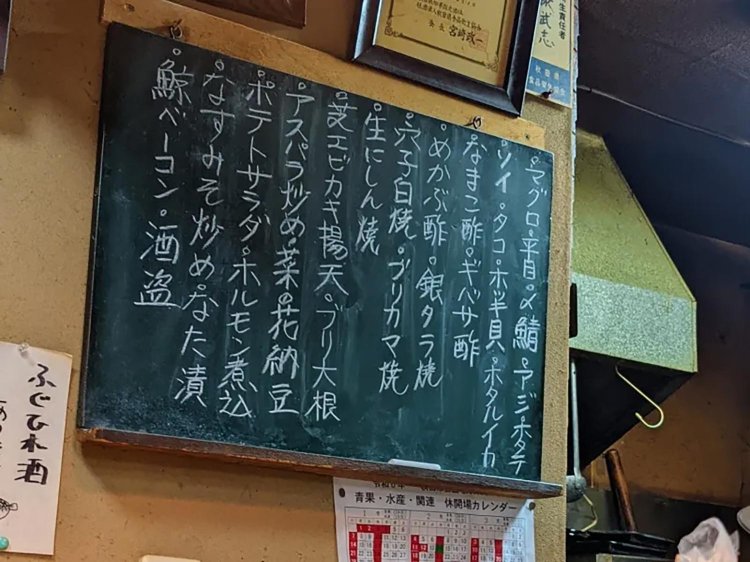 ・マグロ・平目・〆鯖・アジ・ホタテ
・ソイ・タコ・ホッキ貝・ホタルイカ
・なまこ酢・ギバサ酢
・めかぶ酢・銀タラ焼
・穴子白焼・ブリカマ焼
・生にしん焼
・芝エビカキ揚天・ブリ大根
・アスパラ炒め・菜の花納豆
・ポテトサラダ・ホルモン煮込
・なすみそ炒め・なた漬
・鯨ベーコン・酒盗
会長 宮崎政一
生責任者
武志
秋田県
ふぐひれ酒
青果・水産・関連 休開場カレンダー